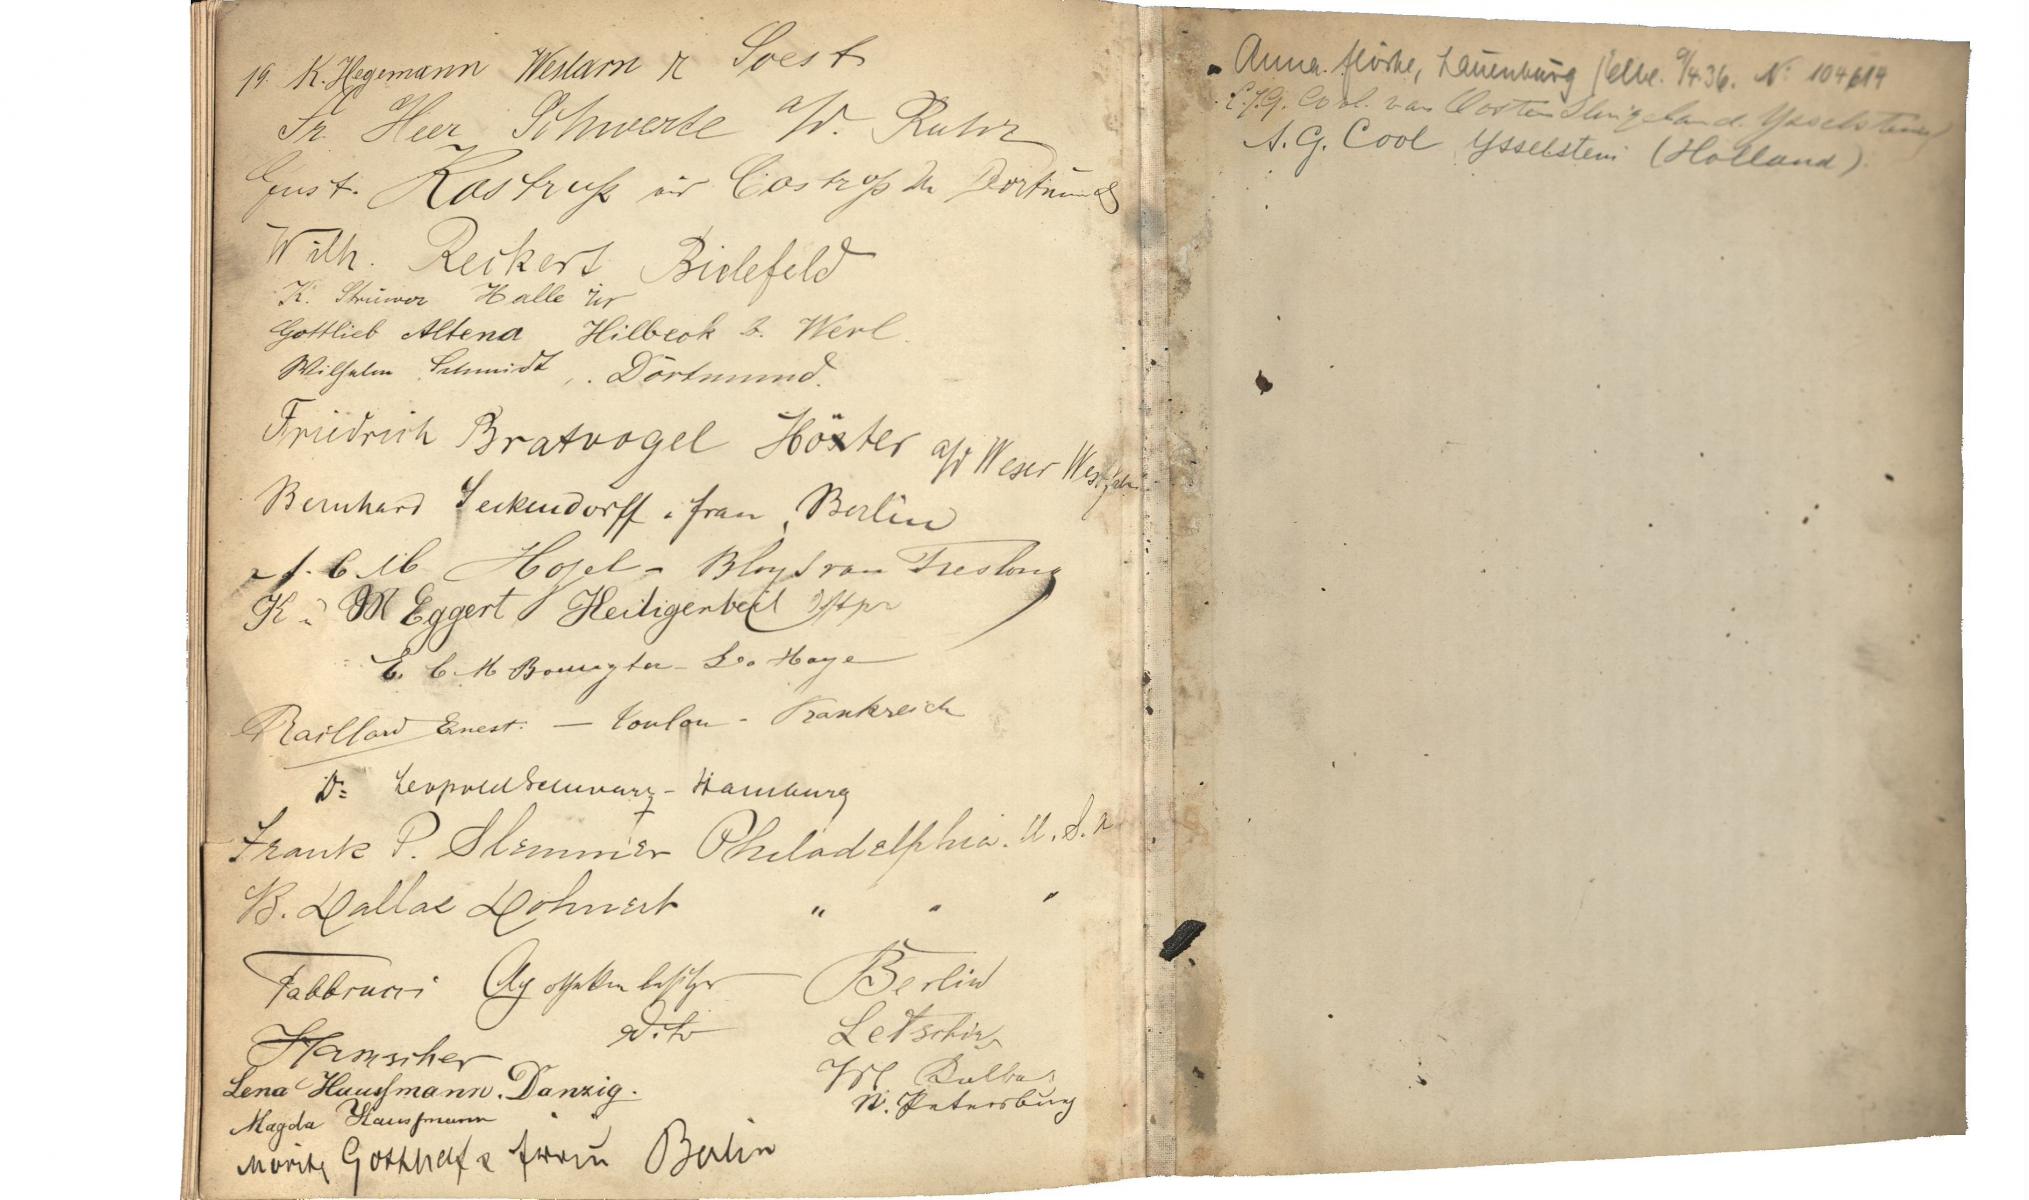 19. K. Hegemann Weslarn Kr Soest
Fr. Heer Schwerte a/d. Ruhr
Gust. Kastrup Castrop Dortmund
Wilh. Reckert Bielefeld
K. Strüwer Halle
Gottlieb Altena Hilbeck b. Werl.
Wilhelm Schmidt, Dortmund.
Friedrich Bratvogel Höxter a/d Weser Westfalen
Bernhard Seckendorff u. frau, Berlin
Bloys van Treslong
K u M Eggert Heiligenbeil Ostpr
E. C. M La Haye
Raillard Ernest. — Toulon - Frankreich
Dr Leopold Schwarz - Hamburg
Frank P. Slemmer Philadelphia. U. S. A
B. Dallas Dohnert " " "
Fabbrucci Apothekenbesitzer Berlin
Hamscher dito Letschin
Lena Haussmann. Danzig.
Magda Haussmann
St. Petersburg
Moritz Gotthelf & frau Berlin
Anna Lauenburg /Elbe. 9/4.36. No 104614
Cool. van Oosten Slingeland. Ysselstein
A. G. Cool Ysselstein (Holland).